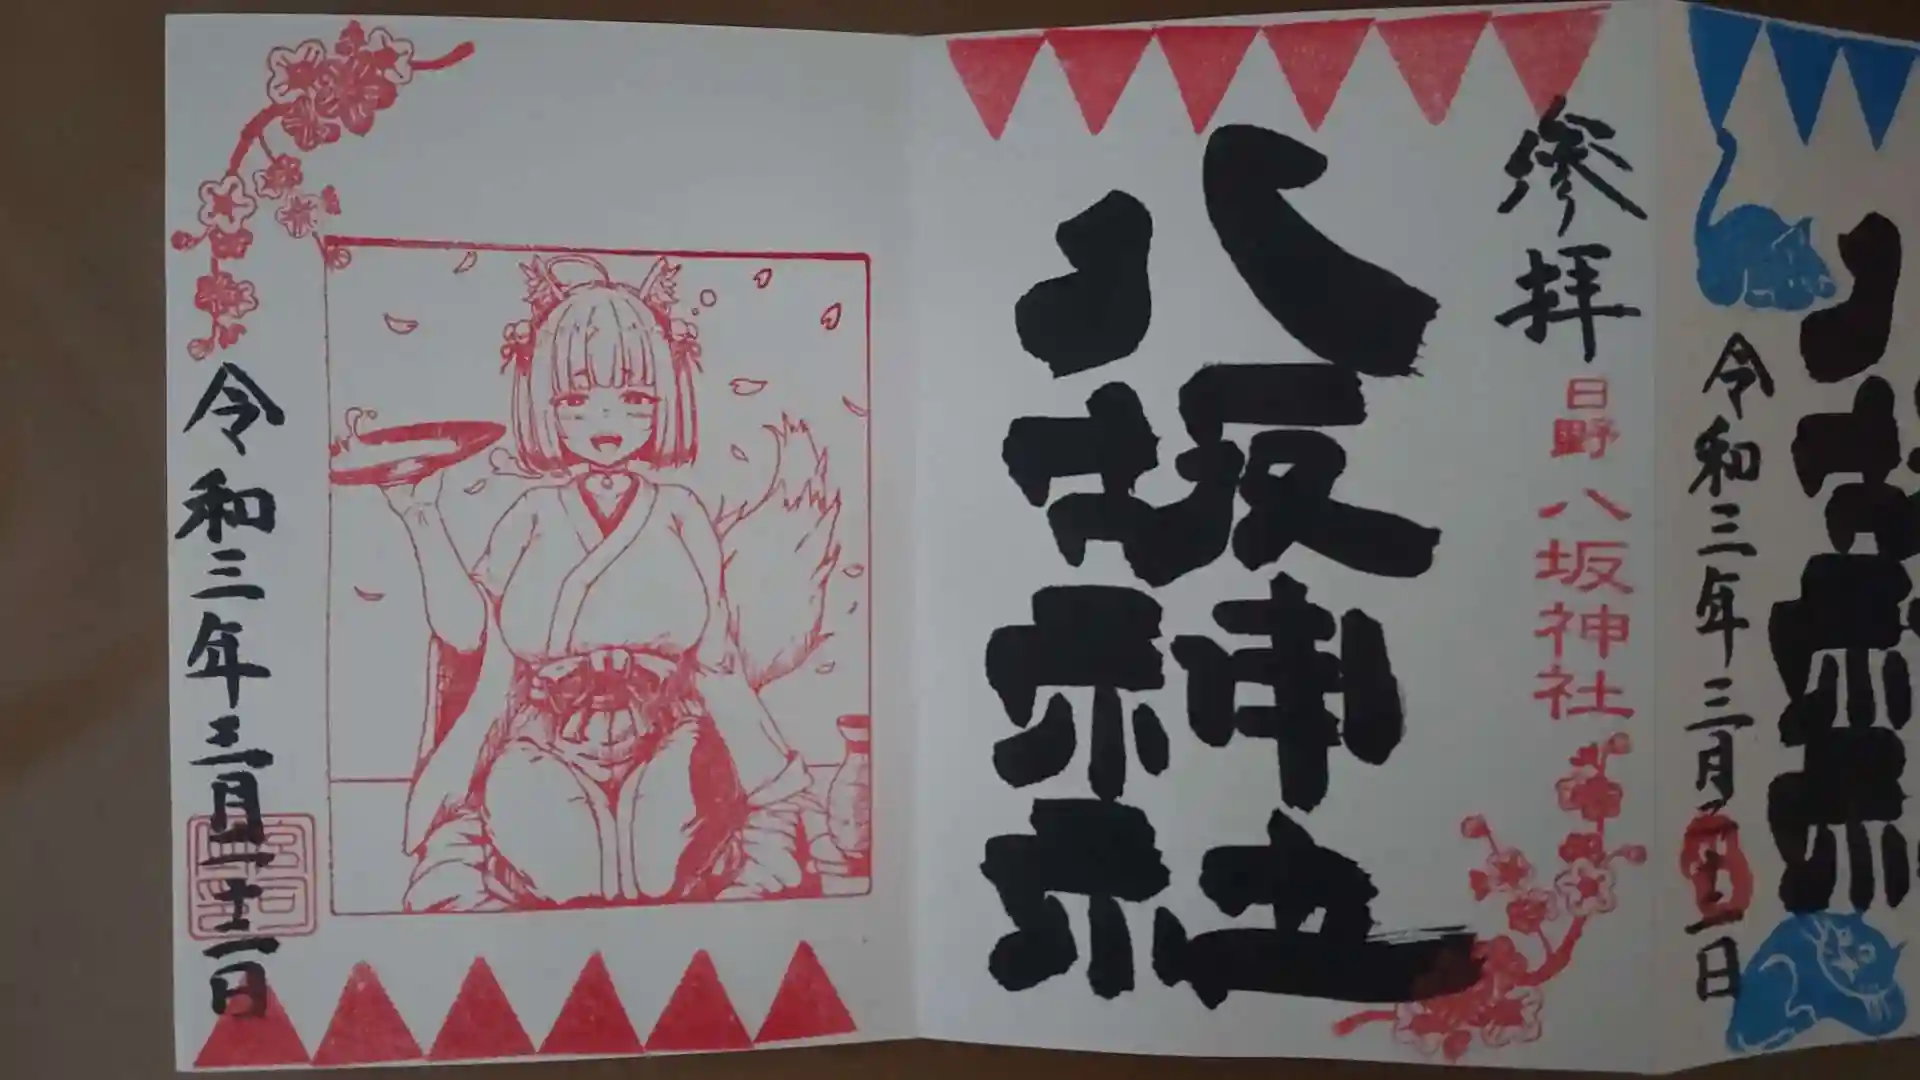 令和三年三月
日
参拝
日野 八坂神社
八坂神社
令和三年三月二十二日